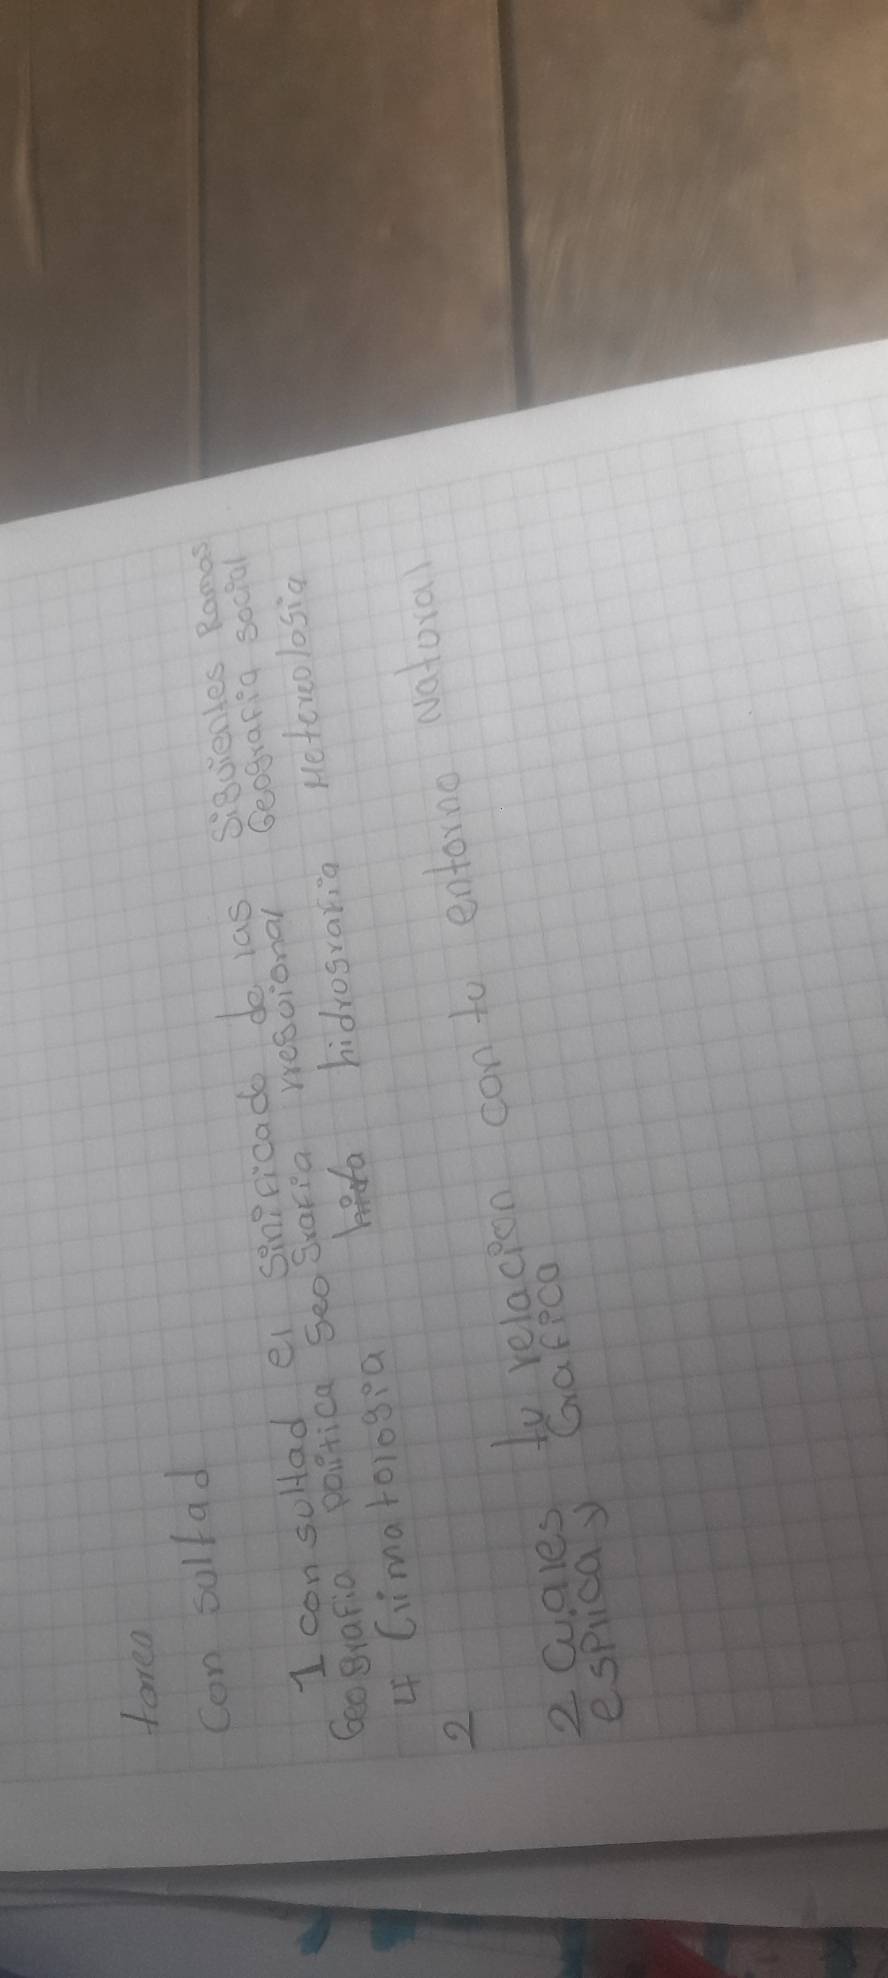 tarea
Con sultad
1 con sultad el sinificado de las siguientes Ramas
Geografia politica geo grafia rregoional Geografia social
4 Climatologia hidrografia Metereologia
2
2 Cuales tu relacion con tu entorno Natural
esplica y Grafica